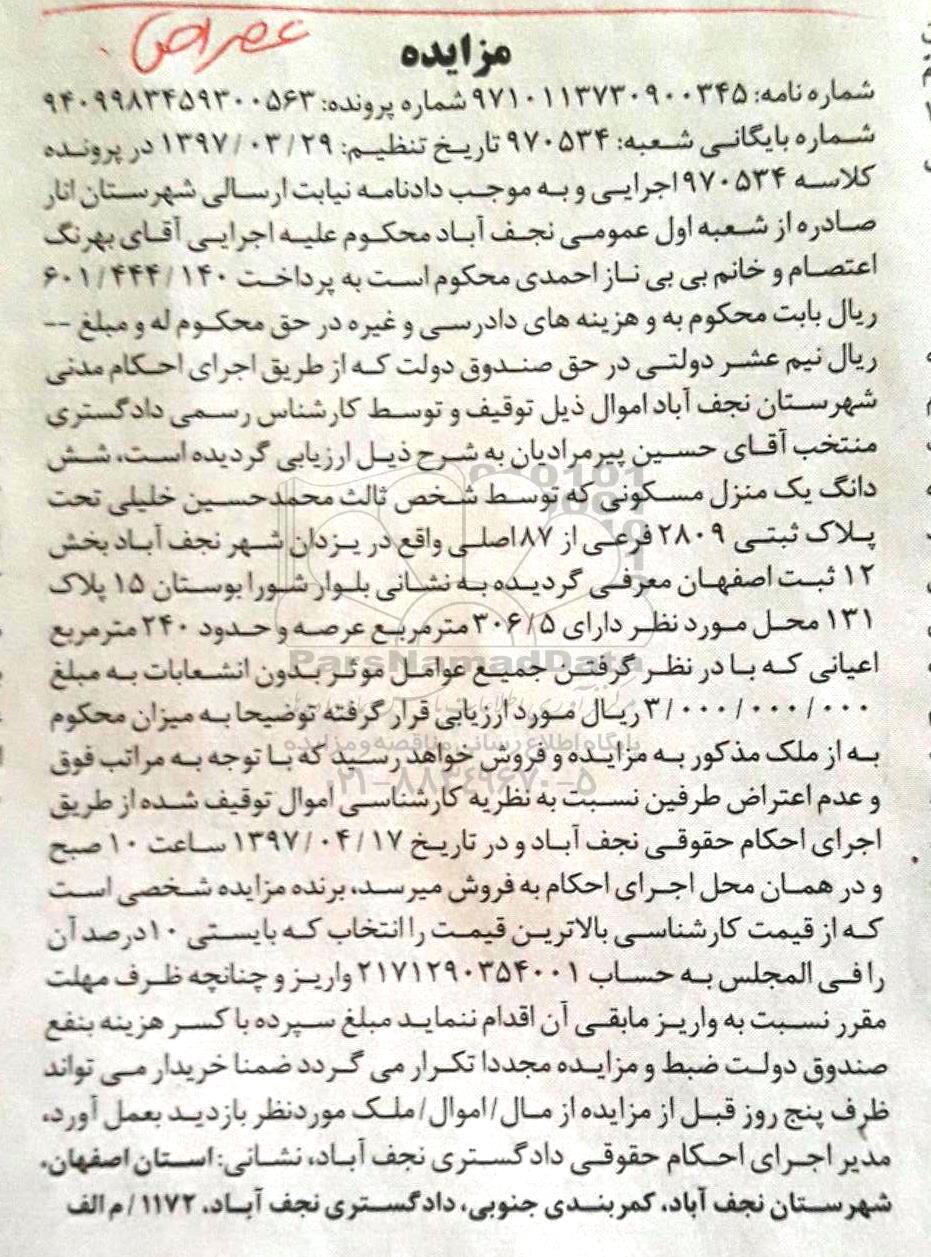 عصر اص
مزایده
شماره نامه: ۹۷۱۰۱۱۳۷۳۰۹۰۰۳۴۵ شماره پرونده: ۹۴۰۹۹۸۳۴۵۹۳۰۰۵۶۳
شماره بایگانی شعبه: ۹۷۰۵۳۴ تاریخ تنظیم: ۱۳۹۷/۰۳/۲۹ در پرونده
کلاسه ۹۷۰۵۳۴ اجرایی و به موجب دادنامه نیابت ارسالی شهرستان انار
صادره از شعبه اول عمومی نجف آباد محکوم علیه اجرایی آقای بهرنگ
اعتصام و خانم بی بی ناز احمدی محکوم است به پرداخت ۶۰۱/۴۴۴/۱۴۰
ریال بابت محکوم به و هزینه های دادرسی و غیره در حق محکوم له و مبلغ --
ریال نیم عشر دولتی در حق صندوق دولت که از طریق اجرای احکام مدنی
شهرستان نجف آباد اموال ذیل توقیف و توسط کارشناس رسمی دادگستری
منتخب آقای حسین پیرمرادیان به شرح ذیل ارزیابی گردیده است، شش
دانگ یک منزل مسکونی که توسط شخص ثالث محمدحسین خلیلی تحت
پلاک ثبتی ۲۸۰۹ فرعی از ۸۷ اصلی واقع در یزدان شهر نجف آباد بخش
۱۲ ثبت اصفهان معرفی گردیده به نشانی بلوار شورا بوستان ۱۵ پلاک
۱۳۱ محل مورد نظر دارای ۳۰۶/۵ مترمربع عرصه و حدود ۲۴۰ مترمربع
اعیانی که با در نظر گرفتن جمیع عوامل موثر بدون انشعابات به مبلغ
۳/۰۰۰/۰۰۰/۰۰۰ ریال مورد ارزیابی قرار گرفته توضیحا به میزان محکوم
به از ملک مذکور به مزایده و فروش خواهد رسید که با توجه به مراتب فوق
و عدم اعتراض طرفین نسبت به نظریه کارشناسی اموال توقیف شده از طریق
اجرای احکام حقوقی نجف آباد و در تاریخ ۱۳۹۷/۰۴/۱۷ ساعت ۱۰ صبح
و در همان محل اجرای احکام به فروش میرسد، برنده مزایده شخصی است
که از قیمت کارشناسی بالاترین قیمت را انتخاب که بایستی ۱۰درصد آن
را فی المجلس به حساب ۲۱۷۱۲۹۰۳۵۴۰۰۱ واریز و چنانچه ظرف مهلت
مقرر نسبت به واریز مابقی آن اقدام ننماید مبلغ سپرده با کسر هزینه بنفع
صندوق دولت ضبط و مزایده مجددا تکرار می گردد ضمنا خریدار می تواند
ظرف پنج روز قبل از مزایده از مال/اموال/ملک موردنظر بازدید بعمل آورد،
مدیر اجرای احکام حقوقی دادگستری نجف آباد، نشانی: استان اصفهان.
شهرستان نجف آباد، کمربندی جنوبی، دادگستری نجف آباد، ۱۱۷۲/م الف
ParsNamadData
پایگاه اطلاع رسانی مناقصه و مزایده
۰۲۱-۸۸۳۴۹۶۷۰-۵